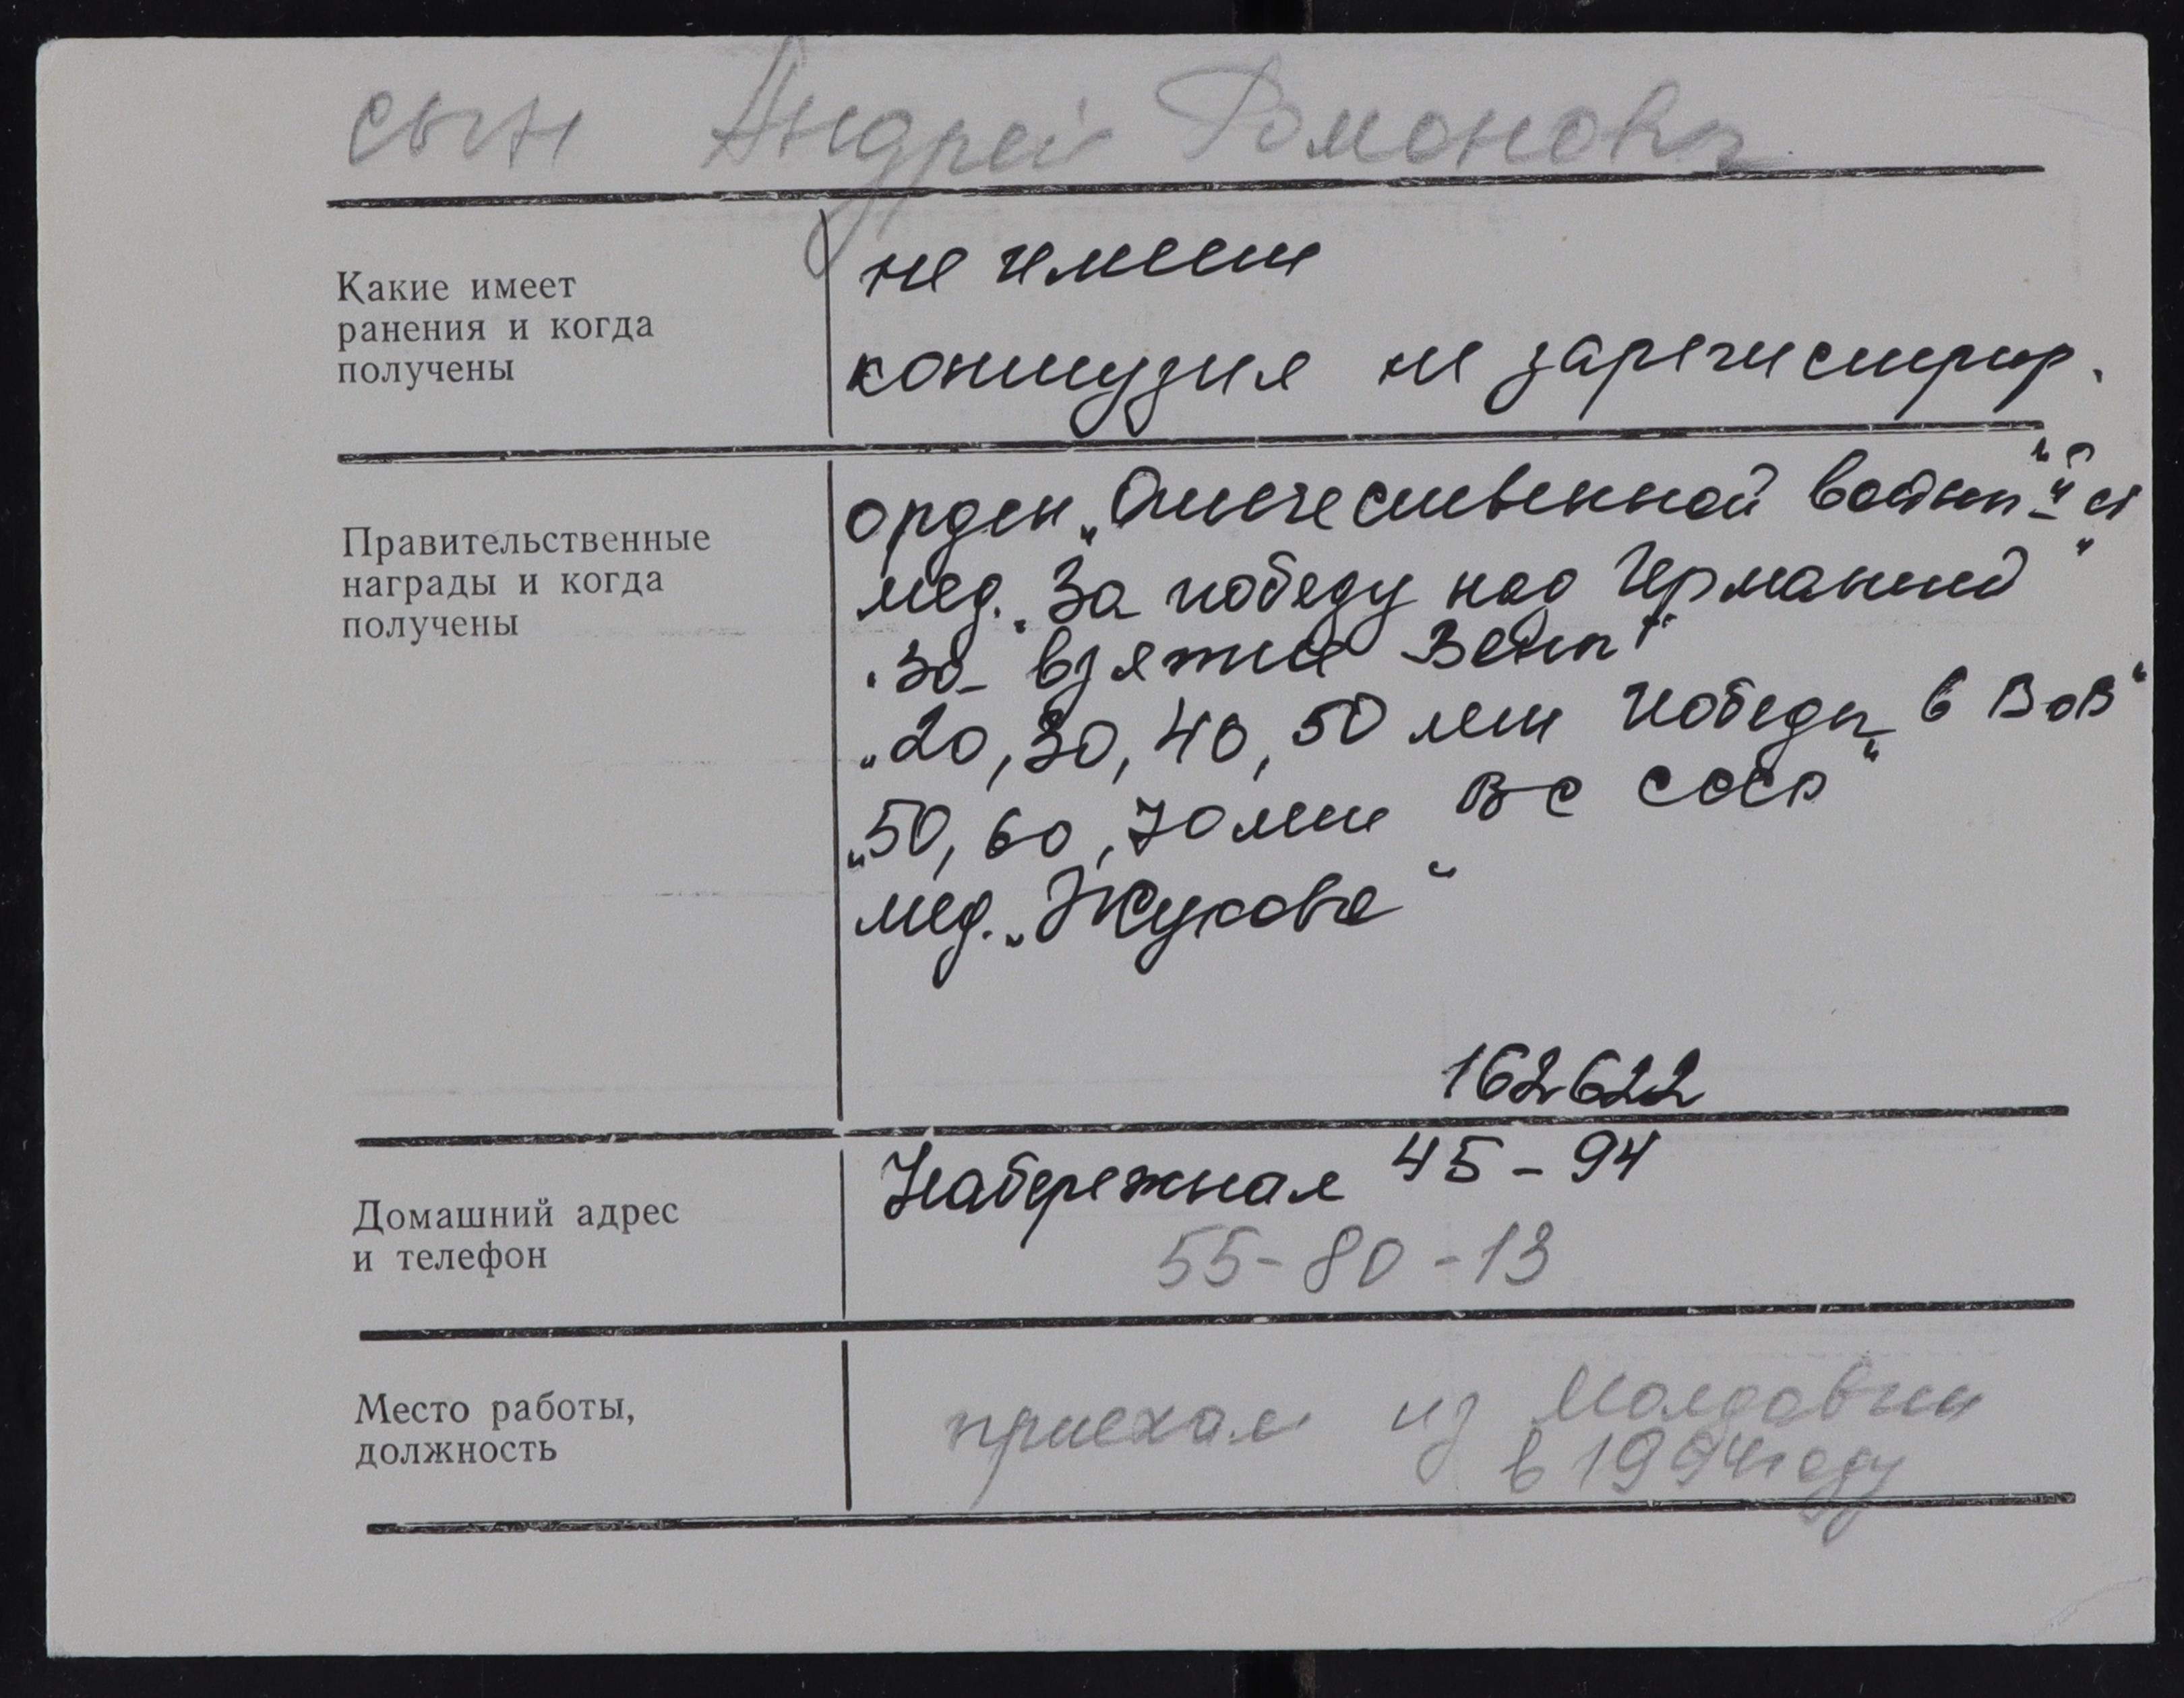 сын Андрей Романовъ
Какие имеет
ранения и когда
получены
не имеет
контузия не зарегистрир.
Правительственные
награды и когда
получены
орден „Отечественной войны" ст
мед. „За победу над Германией"
„За взятие Вены"
„20, 30, 40, 50 лет Победы в ВОВ"
„50, 60, 70 лет ВС СССР"
мед. „Жукова"
162622
Домашний адрес
и телефон
Набережная 45-94
55-80-13
Место работы,
должность
приехал из Молдавии
в 1994 году